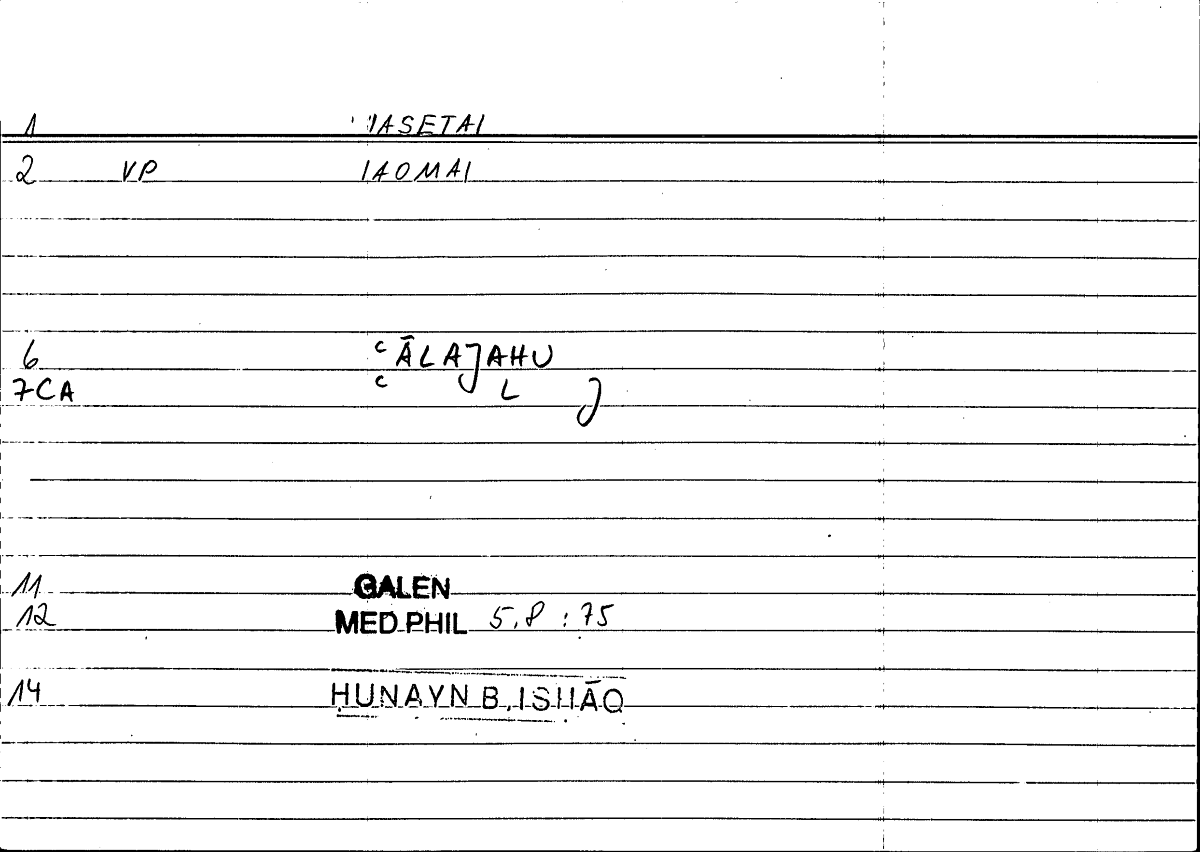 1 IASETAI
2 VP IAOMAI
6 ʿĀLAJAHU
7CA ʿ L J
11 GALEN
12 MED.PHIL 5.8 : 75
14 ḤUNAYN B. ISḤĀQ